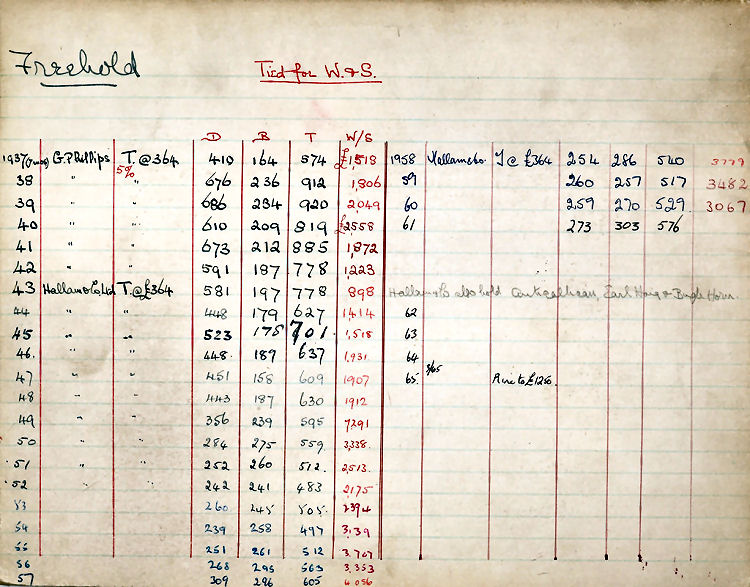 Freehold
Tied for W. & S.
D B T W/S
G. Phillips T. @ 364 410 164 574 £1518 1958 T @ £364 254 286 540 3779
5%
38 " " 676 236 912 1,806 59 260 257 517 3482
39 " " 686 234 920 2,049 60 259 270 529 3067
40 " " 610 209 819 £2558 61 273 303 576
41 " " 673 212 885 1,872
42 " " 591 187 778 1,223
43 Hallam & Co, Ltd T. @ £364 581 197 778 898 Hallam & Co also hold Earl Haig & Bugle Horn.
44 " " 448 179 627 1414 62
45 " " 523 178 701 1,518 63
46. " " 448 189 637 1,931 64
47 " " 451 158 609 1907 65. 3/65 Rise to £1250.
48 " " 443 187 630 1912
49 " " 356 239 595 7291
50 " " 284 275 559 3,338.
51 " " 252 260 512. 2,513.
52 " " 242 241 483 2175
53 260 245 505 2394
54 239 258 497 3,139
55 251 261 512 3,707
56 268 295 563 3,353
57 309 296 605 4,056